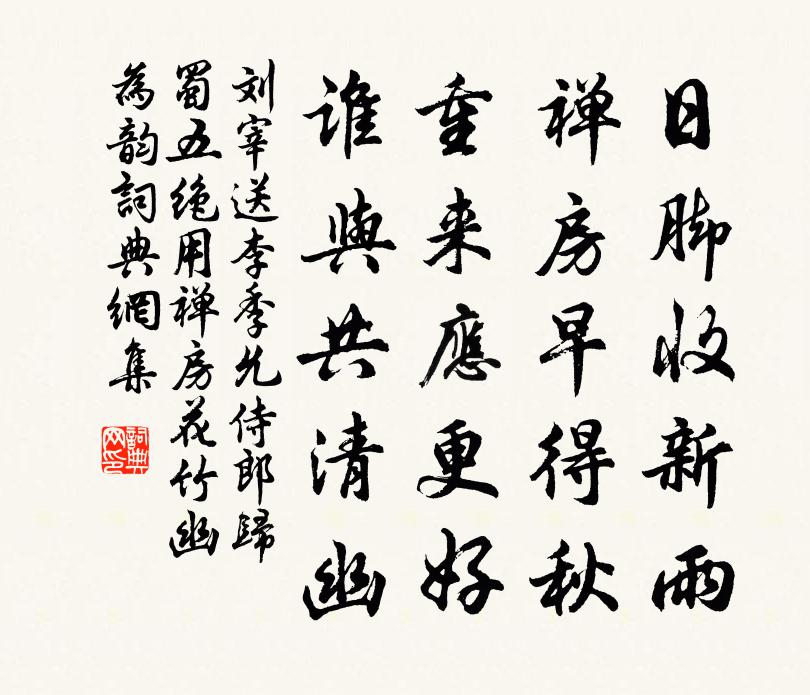 日脚收新雨
禅房早得秋
重来應更好
誰與共清幽
刘宰送李季允侍郎歸
蜀五绝用禅房花竹幽
為韵詞典網集
詞典
网印